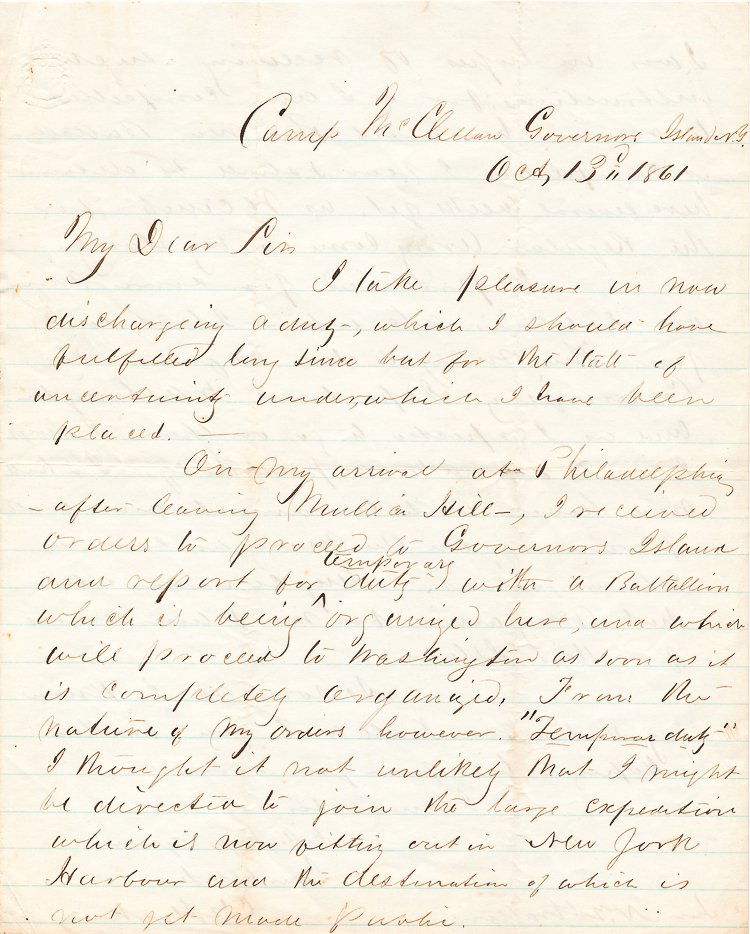 Camp McClellan Governors Island N.Y.
Oct 13" 1861
My Dear Sir
I take pleasure in now
dischargeing a duty, which I should have
fulfilled long since but for the state of
uncertainty under, which I have been
placed. —
On my arrival at Philadelphia
- after leaving Mullica Hill -, I received
orders to proceed to Governors Island
temporary
and report for duty with a Battallion
which is being organized here, and which
will proceed to Washington as soon as it
is completely organized. From the
nature of my orders however. "Temporary duty"
I thought it not unlikely that I might
be directed to join the large expedition
which is now fitting out in New York
Harbour and the destination of which is
not yet made public.